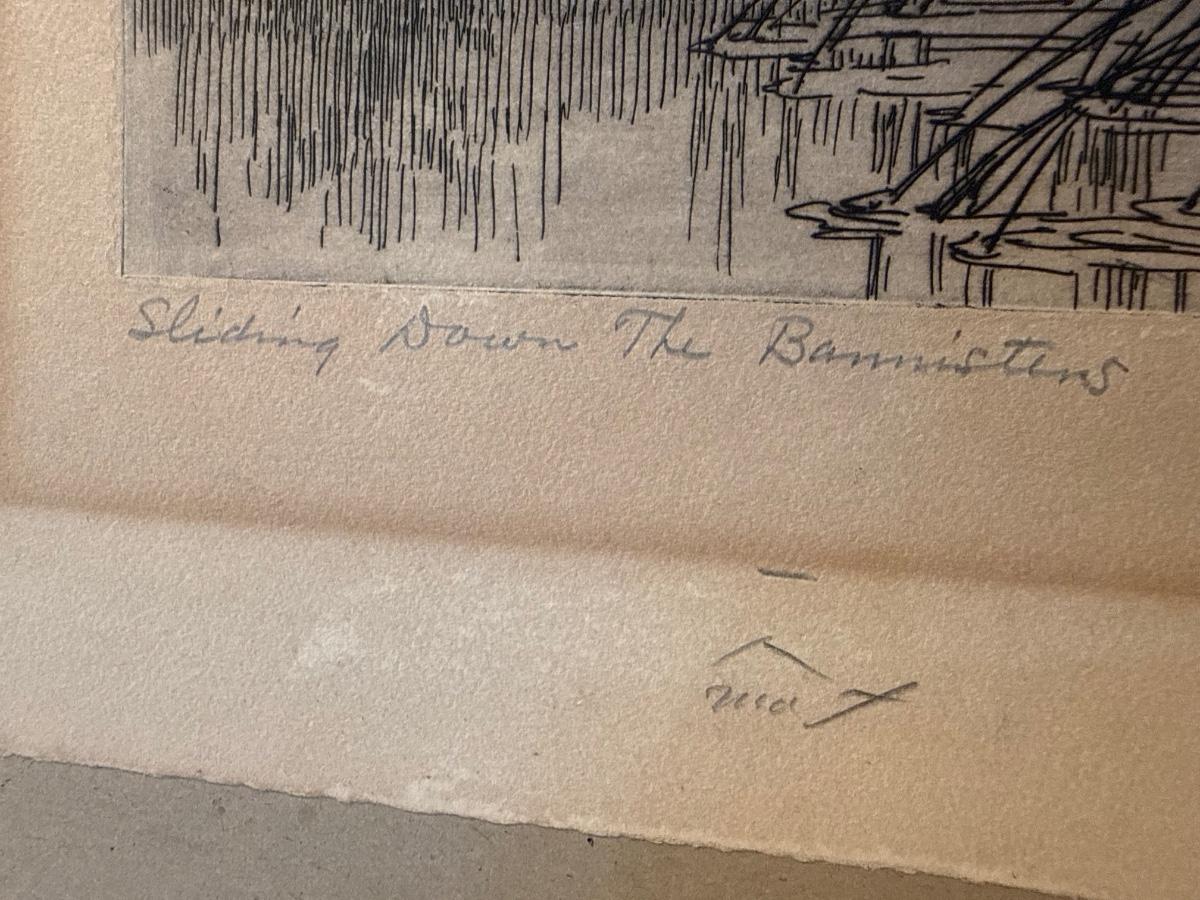 Sliding Down The Bannisters